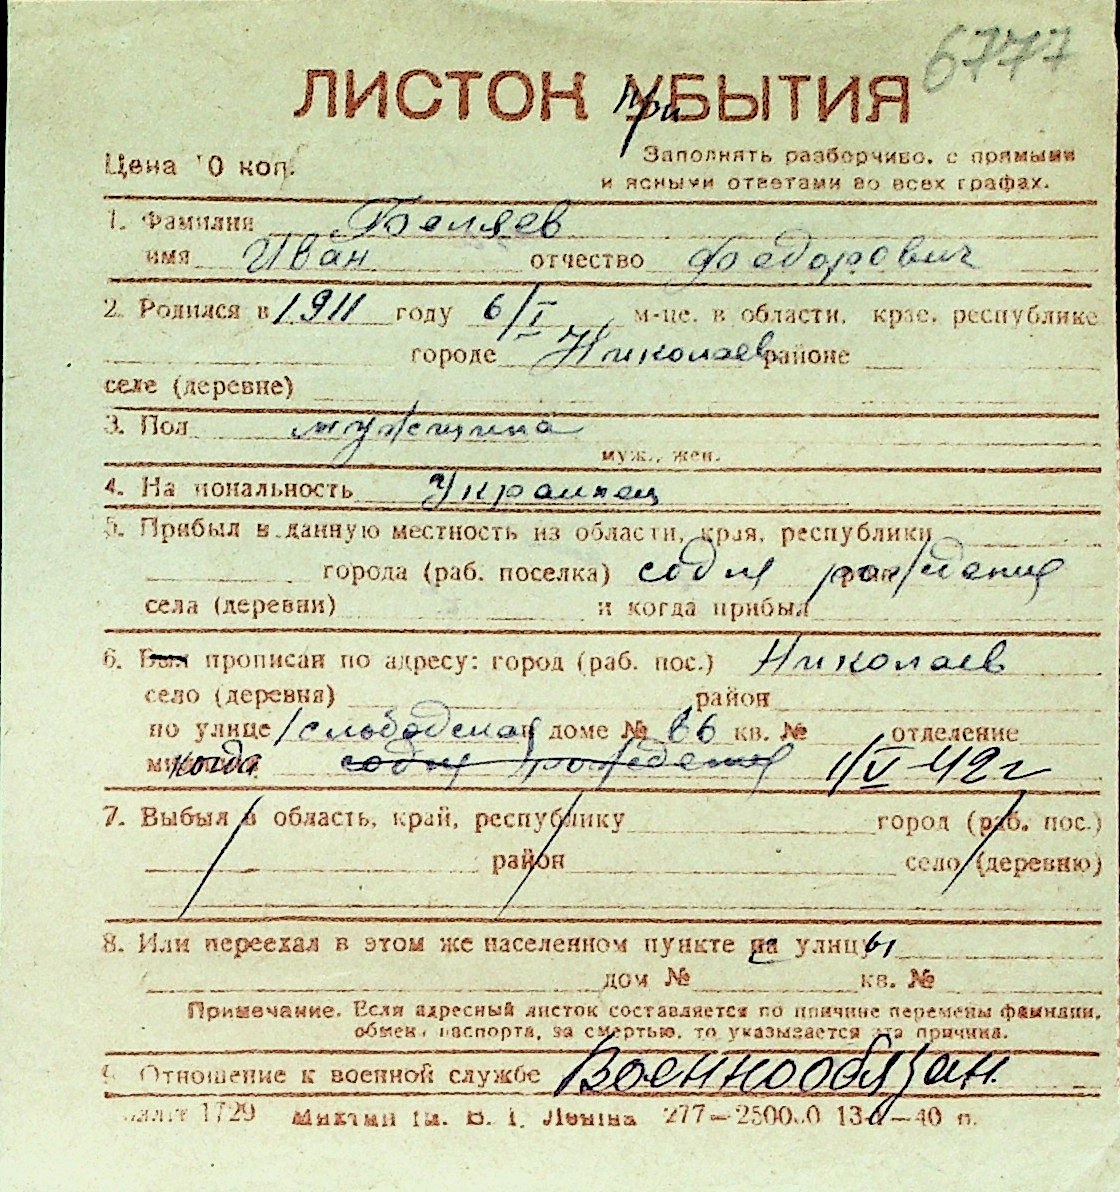 6777
ЛИСТОК ПриБЫТИЯ
Цена 10 коп.
Заполнять разборчиво, с прямыми
и ясными ответами во всех графах.
1. Фамилия Беляев
имя Иван отчество Федорович
2. Родился в 1911 году 6/I м-це, в области, крае, республике
городе Николаев районе
селе (деревне)
3. Пол мужчина
муж., жен.
4. Национальность Украинец
5. Прибыл в данную местность из области, края, республики
города (раб. поселка) со дня рождения
села (деревни) и когда прибыл
6. Был прописан по адресу: город (раб. пос.) Николаев
село (деревня) район
по улице 1 слободская доме № 86 кв. № отделение
когда со дня рождения 1/V-42 г
7. Выбыл в область, край, республику город (раб. пос.)
район село (деревню)
8. Или переехал в этом же населенном пункте с улицы
дом № кв. №
Примечание. Если адресный листок составляется по причине перемены фамилии,
обмена паспорта, за смертью, то указывается эта причина.
9. Отношение к военной службе Военнообязан.
1729 Миколаїв Ім. В. І. Леніна 277—250000 13 —40 п.